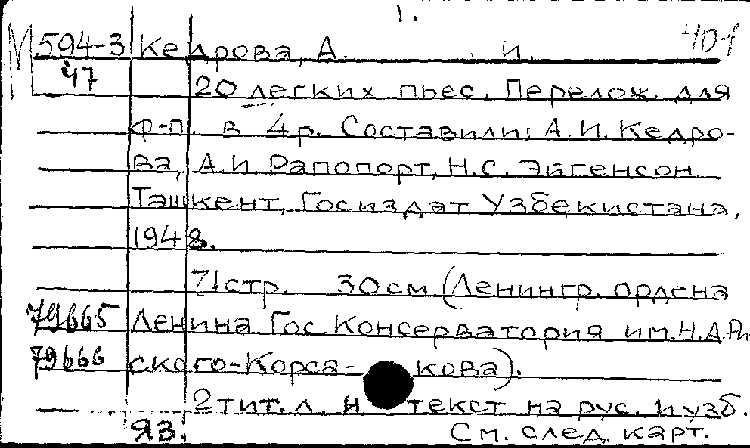 1.
М 594-3 Кедрова, А. И. 401
47
20 легких пьес. Перелож. для
ф-п. в 4 р. Составили: А.И. Кедро-
ва, А.И. Рапопорт, Н.С. Эйгенсон
Ташкент, Госиздат Узбекистана,
1948.
71 стр. 30 см (Ленингр. ордена
79665 Ленина Гос Консерватория им. Н.А. Рим
79666 ского-Корса- кова).
2 тит. л. и текст на рус. и узб.
ЯЗ. См. след. карт.